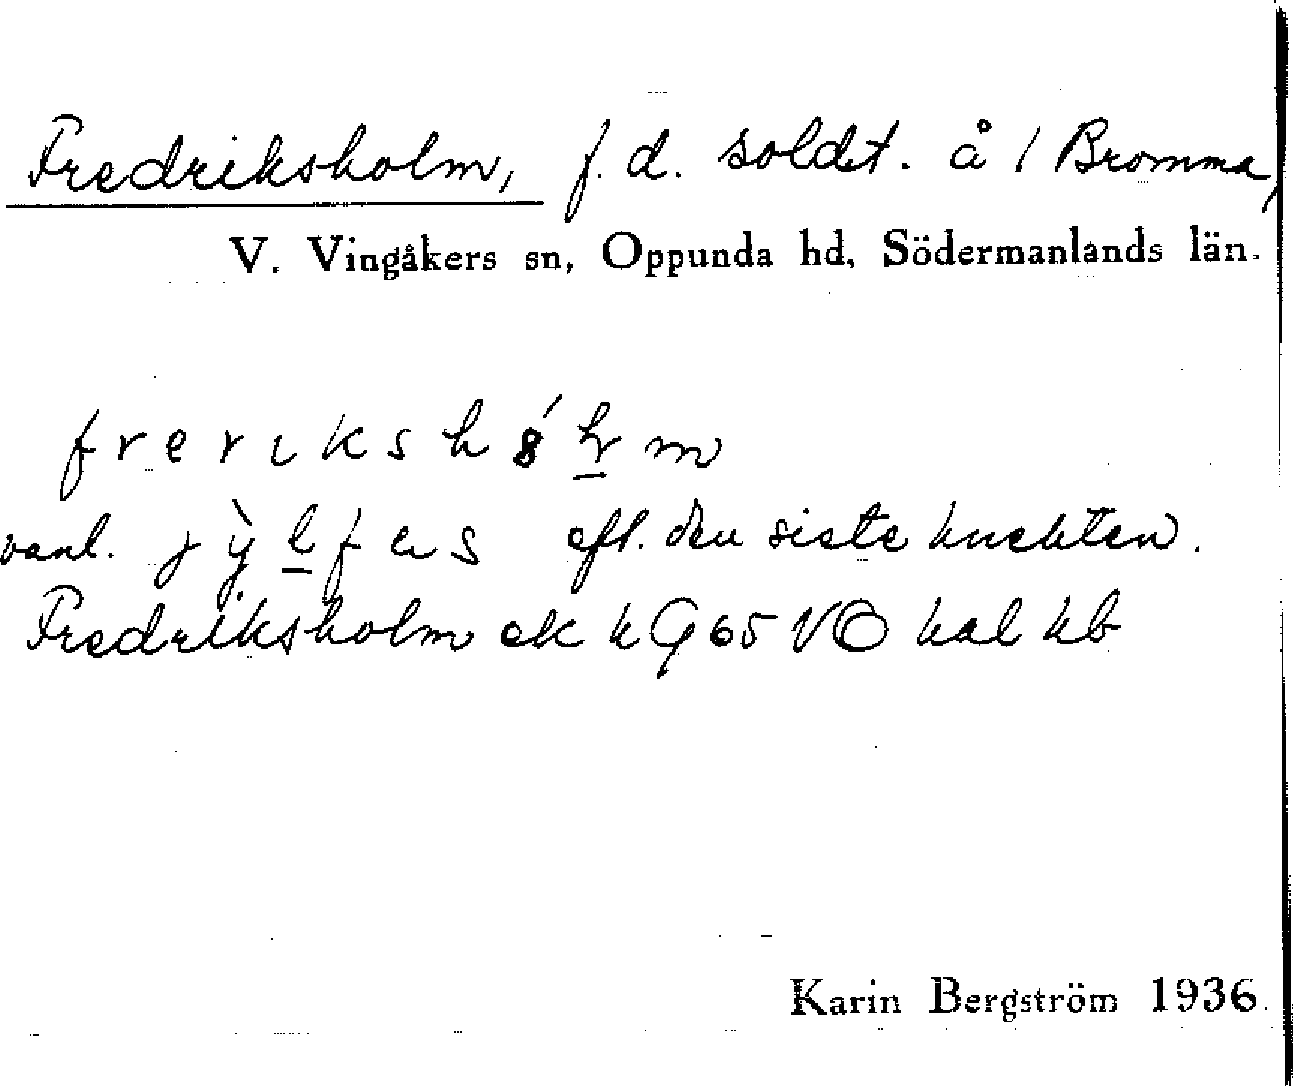 Fredriksholm, f.d. soldt. å 1 Bromma,
V. Vingåkers sn, Oppunda hd, Södermanlands län.
vanl. eft. den siste knekten.
Fredriksholm ek k G 65 VO hal kb
Karin Bergström 1936.